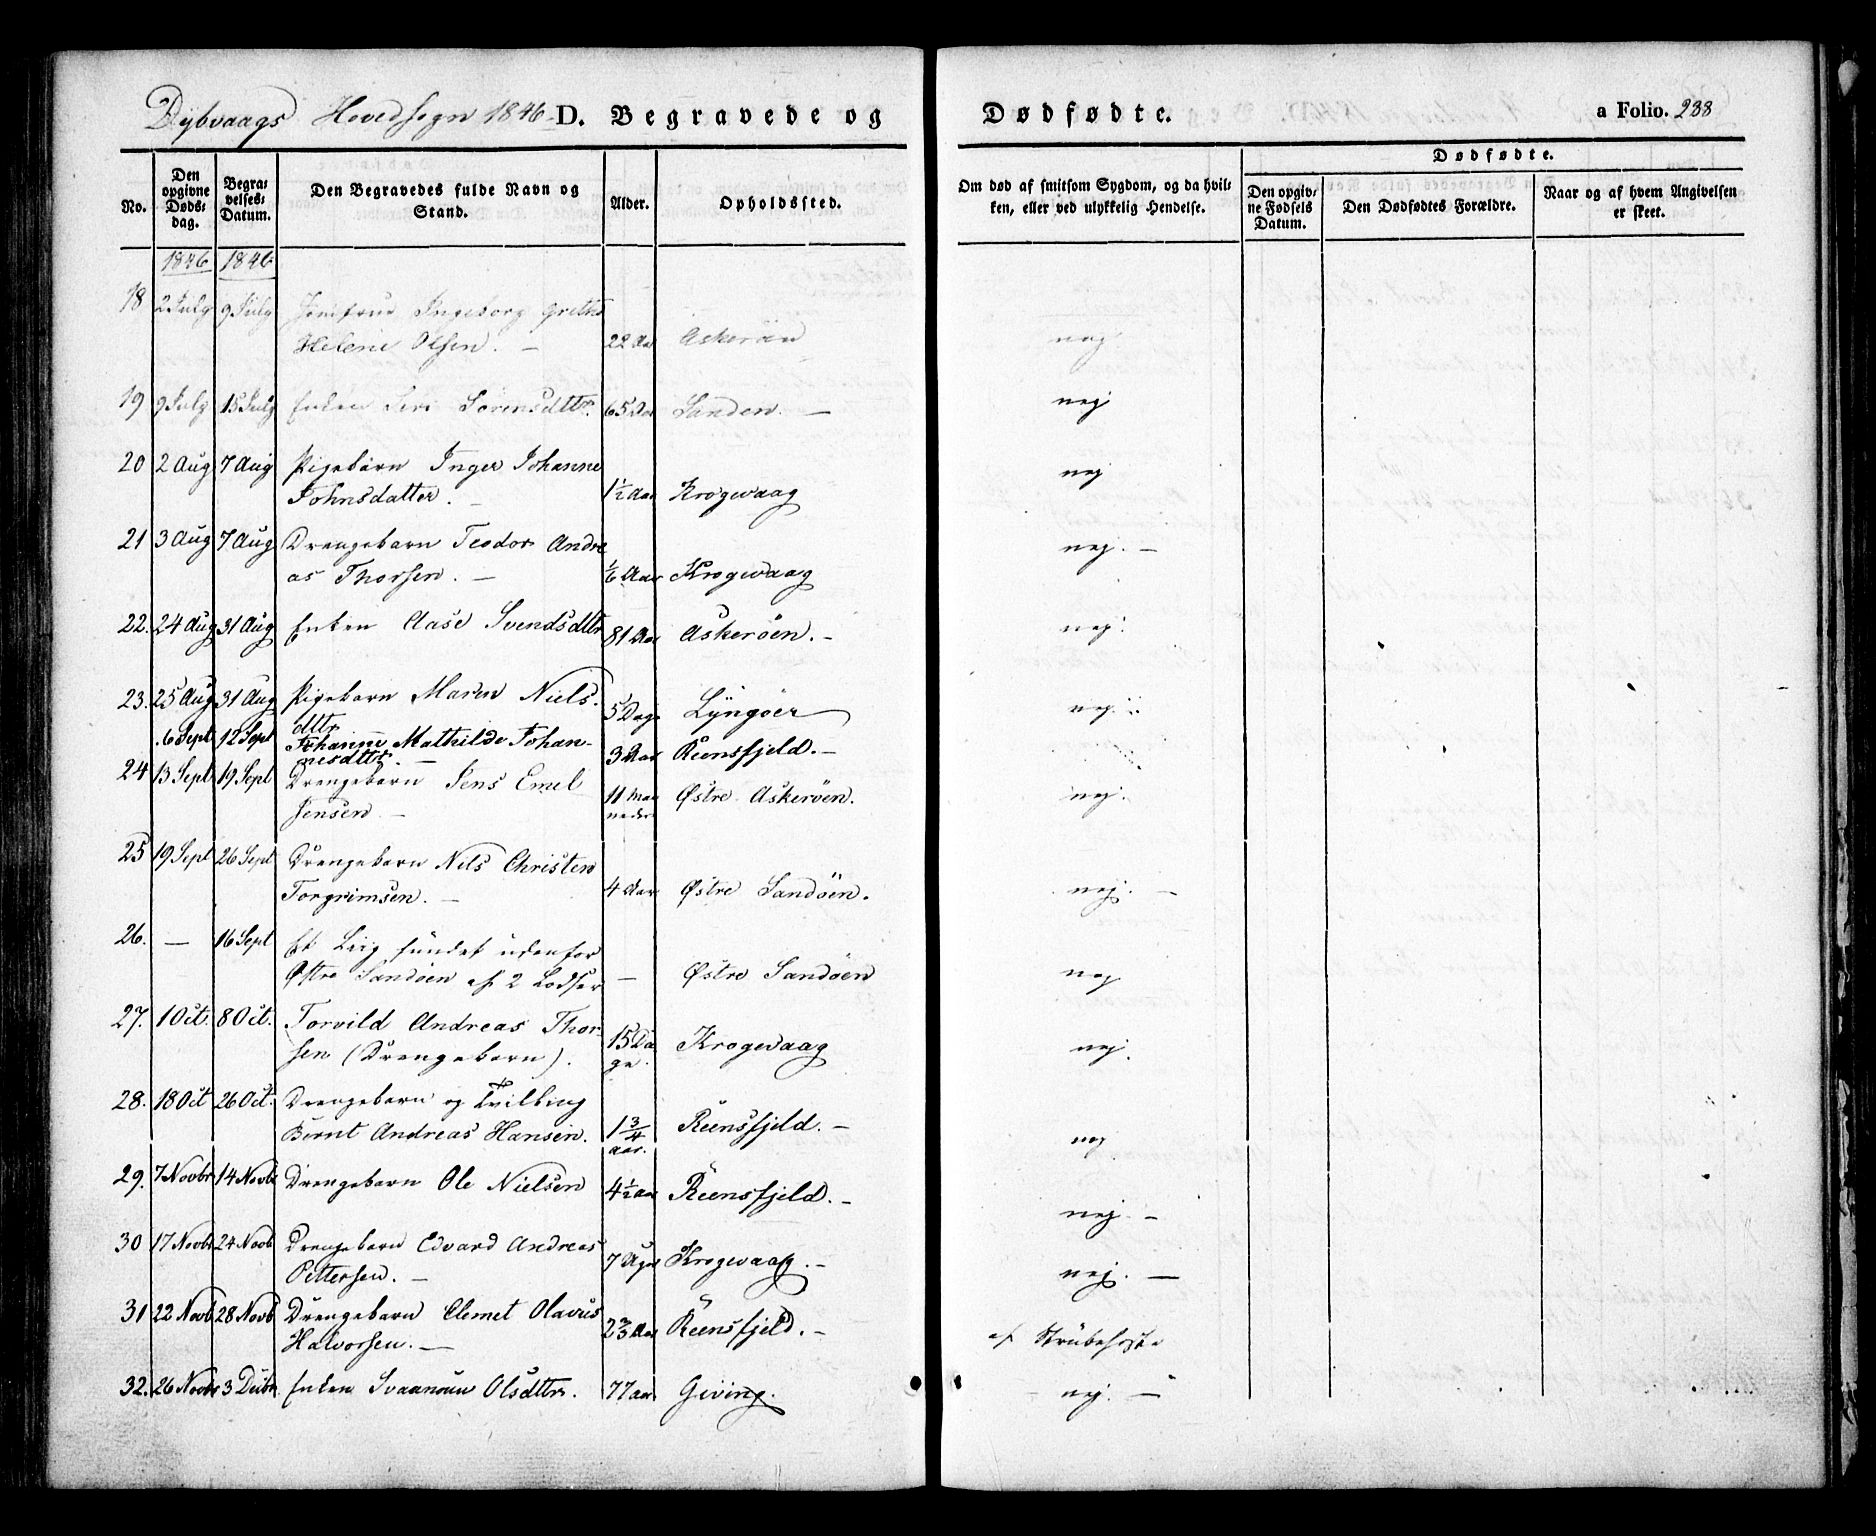 Dybvaags Hovedsogn 1846 D. Begravede og Dødfødte. a Folio. 238
No.
Den opgivne Dødsdag.
Begravelses-Datum.
Den Begravedes fulde Navn og Stand.
Alder.
Opholdssted.
Om død af smitsom Sygdom, og da hvilken, eller ved ulykkelig Hendelse.
Dødfødte.
Den opgivne Fødsels Datum.
Den Dødfødtes Forældre.
Naar og af hvem Angivelsen er skeet.
1846 1846
18 2 July 9 July Jomfrue Ingeborg Grethe
Helene Olsen. — 22 Aar Askerøen nej
19 9 July 15 July Enken Siri Sørensdttr. 65 Aar Sanden. — nej
20 2 Aug 7 Aug Pigebarn Inger Johanne
Johnsdatter. — 1½ Aar Krogevaag nej
21 3 Aug 7 Aug Drengebarn Teodor Andre
as Thorsen. — 1/6 Aar Krogevaag nej. —
22. 24 Aug 31 Aug Enken Aase Svendsdttr 81 Aar Askerøen. — nej.
23. 25 Aug 31 Aug Pigebarn Maren Niels.
dttr 5 Dage Lyngøer nej.
6 Sept 12 Sept Johanne Mathilde Johan-
nesdttr. — 3 Aar Reensfjeld. —
24 13 Sept 19 Sept Drengebarn Jens Emel
Jensen — 11 Maa
neder Østre Askerøen. nej.
25 19 Sept 26 Sept Drengebarn Nels Christen
Torgrimsen. — 4 Aar Østre Sandøen. nej. —
26. — 16 Sept Et Liig fundet udenfor
Østre Sandøen af 2 Lodser — Østre Sandøen nej
27. 1 Oct. 8 Oct. Torvild Andreas Thor-
sen (Drengebarn). 15 Da
ge. Krogevaag nej.
28. 18 Oct 26 Oct. Drengebarn og Tvilling
Bernt Andreas Hansen. 1 3/4
aar. Reensfjeld. — nej
29. 7 Novbr 14 Novb Drengebarn Ole Nielsen 4½ aar Reensfjeld. — nej. —
30 17 Novbr 24 Novb Drengebarn Edvard Andreas
Pettersen. — 7 Uger Krogevaag. — nej. —
31 22 Novb 28 Novb Drengebarn Clemet Olavus
Halvorsen. — 2 2/3 Aar Reensfjeld. — af Strubehoste
32. 26 Novbr 3 Decbr. Enken Olsdttr. 77 aar Geving. nej. —